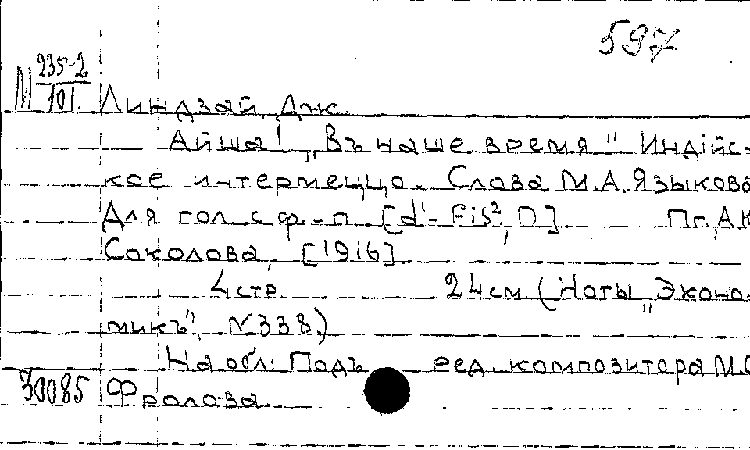 597
М 235-2/101.
Линдзай, Дж.
Айша! „Въ наше время" Индійс-
кое интермеццо. Слова М.А. Языкова
Для гол. с ф.-п. [d¹-fis², D] Пг., А.К
Соколова, [1916]
4 стр. 24 см (Ноты „Эконо-
микъ", № 338.)
На обл.: Подъ ред. композитора М.
30085 Фролова